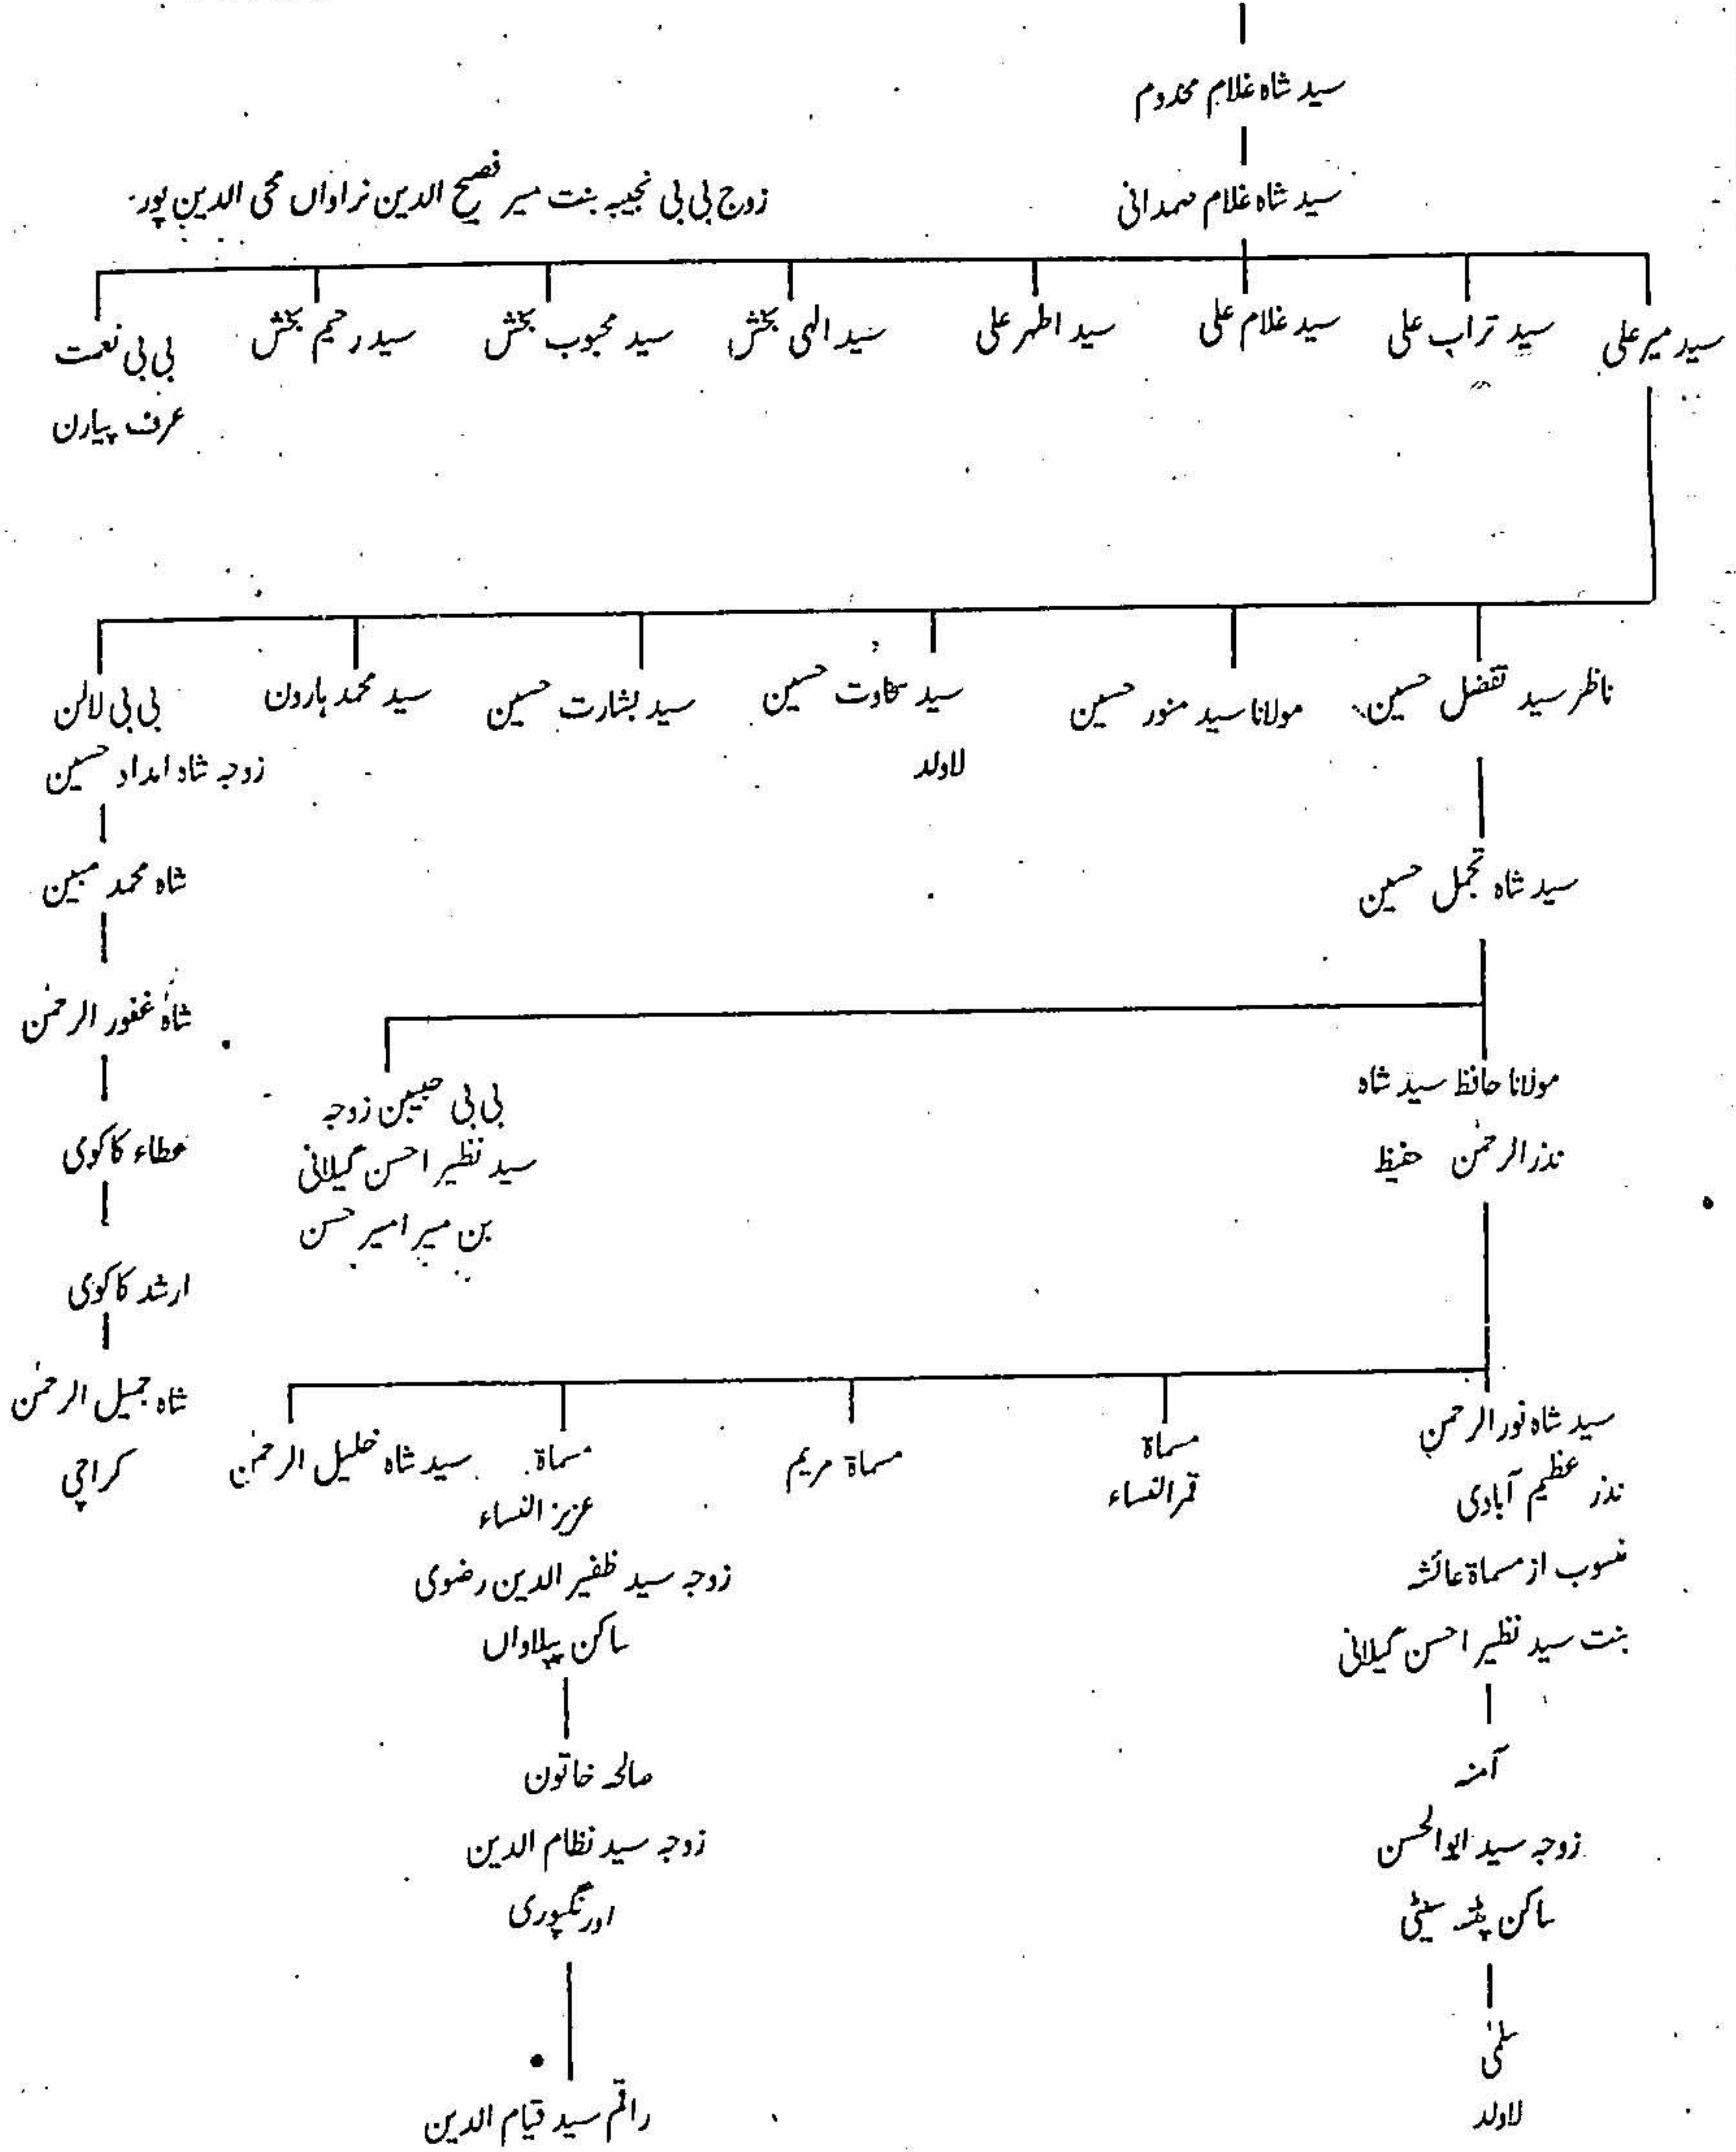 سید شاہ غلام مخدوم
سید شاہ غلام صمدانی
زوج بی بی نجیبہ بنت میر فصیح الدین نراواں محی الدین پور
سید میر علی
سید تراب علی
سید غلام علی
سید اطہر علی
سید الہی بخش
سید محبوب بخش
سید رحیم بخش
بی بی نعمت
عرف پیارن
ناظر سید تفضل حسین
مولانا سید منور حسین
سید سخاوت حسین
لاولد
سید بشارت حسین
سید محمد ہارون
بی بی لالن
زوجہ شاہ امداد حسین
سید شاہ تجمل حسین
شاہ محمد مبین
شاہ غفور الرحمٰن
مولانا حافظ سید شاہ
نذر الرحمٰن حفیظ
بی بی حبیبن زوجہ
سید نظیر احسن گیلانی
بن میر امیر حسن
عطاء کاکوی
ارشد کاکوی
شاہ جمیل الرحمٰن
کراچی
سید شاہ نور الرحمن
نذر عظیم آبادی
منسوب از مسماۃ عائشہ
بنت سید نظیر احسن گیلانی
مسماۃ
قمر النساء
مسماۃ مریم
مسماۃ
عزیز النساء
زوجہ سید ظفیر الدین رضوی
ساکن پپلاواں
سید شاہ خلیل الرحمٰن
آمنہ
زوجہ سید ابوالحسن
ساکن پٹنہ سیٹی
سلمیٰ
لاولد
صالحہ خاتون
زوجہ سید نظام الدین
اورنگپوری
راقم سید قیام الدین